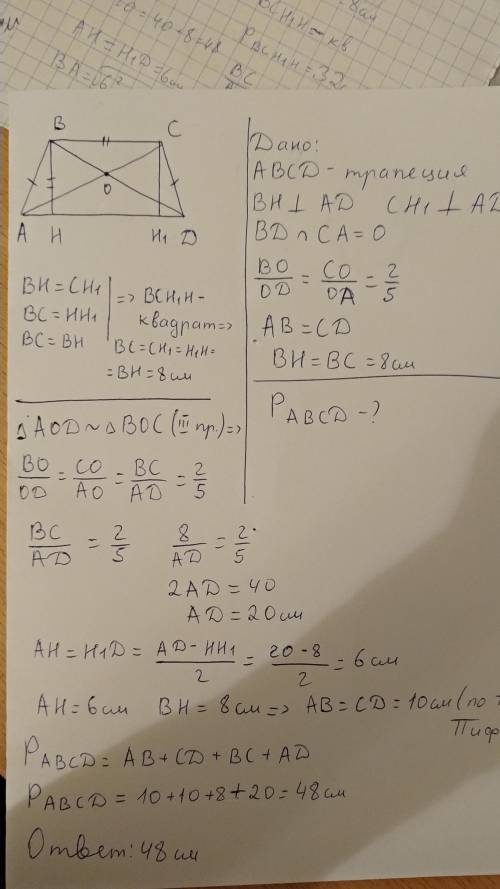 AH = H₁D = 6см
P BCH₁H = 32
B C
O
A H H₁ D
Дано:
ABCD - трапеция
BH ⊥ AD CH₁ ⊥ AD
BD ∩ CA = O
BO/OD = CO/OA = 2/5
AB = CD
BH = BC = 8см
P ABCD - ?
BH = CH₁
BC = HH₁
BC = BH
=> BCH₁H -
квадрат =>
BC = CH₁ = H₁H =
= BH = 8см
△AOD ~ △BOC (III пр.) =>
BO/OD = CO/AO = BC/AD = 2/5
BC/AD = 2/5 8/AD = 2/5
2AD = 40
AD = 20см
AH = H₁D = AD - HH₁/2 = 20 - 8/2 = 6 см
AH = 6см BH = 8см => AB = CD = 10см (по
P ABCD = AB + CD + BC + AD
P ABCD = 10 + 10 + 8 + 20 = 48см
Ответ: 48 см